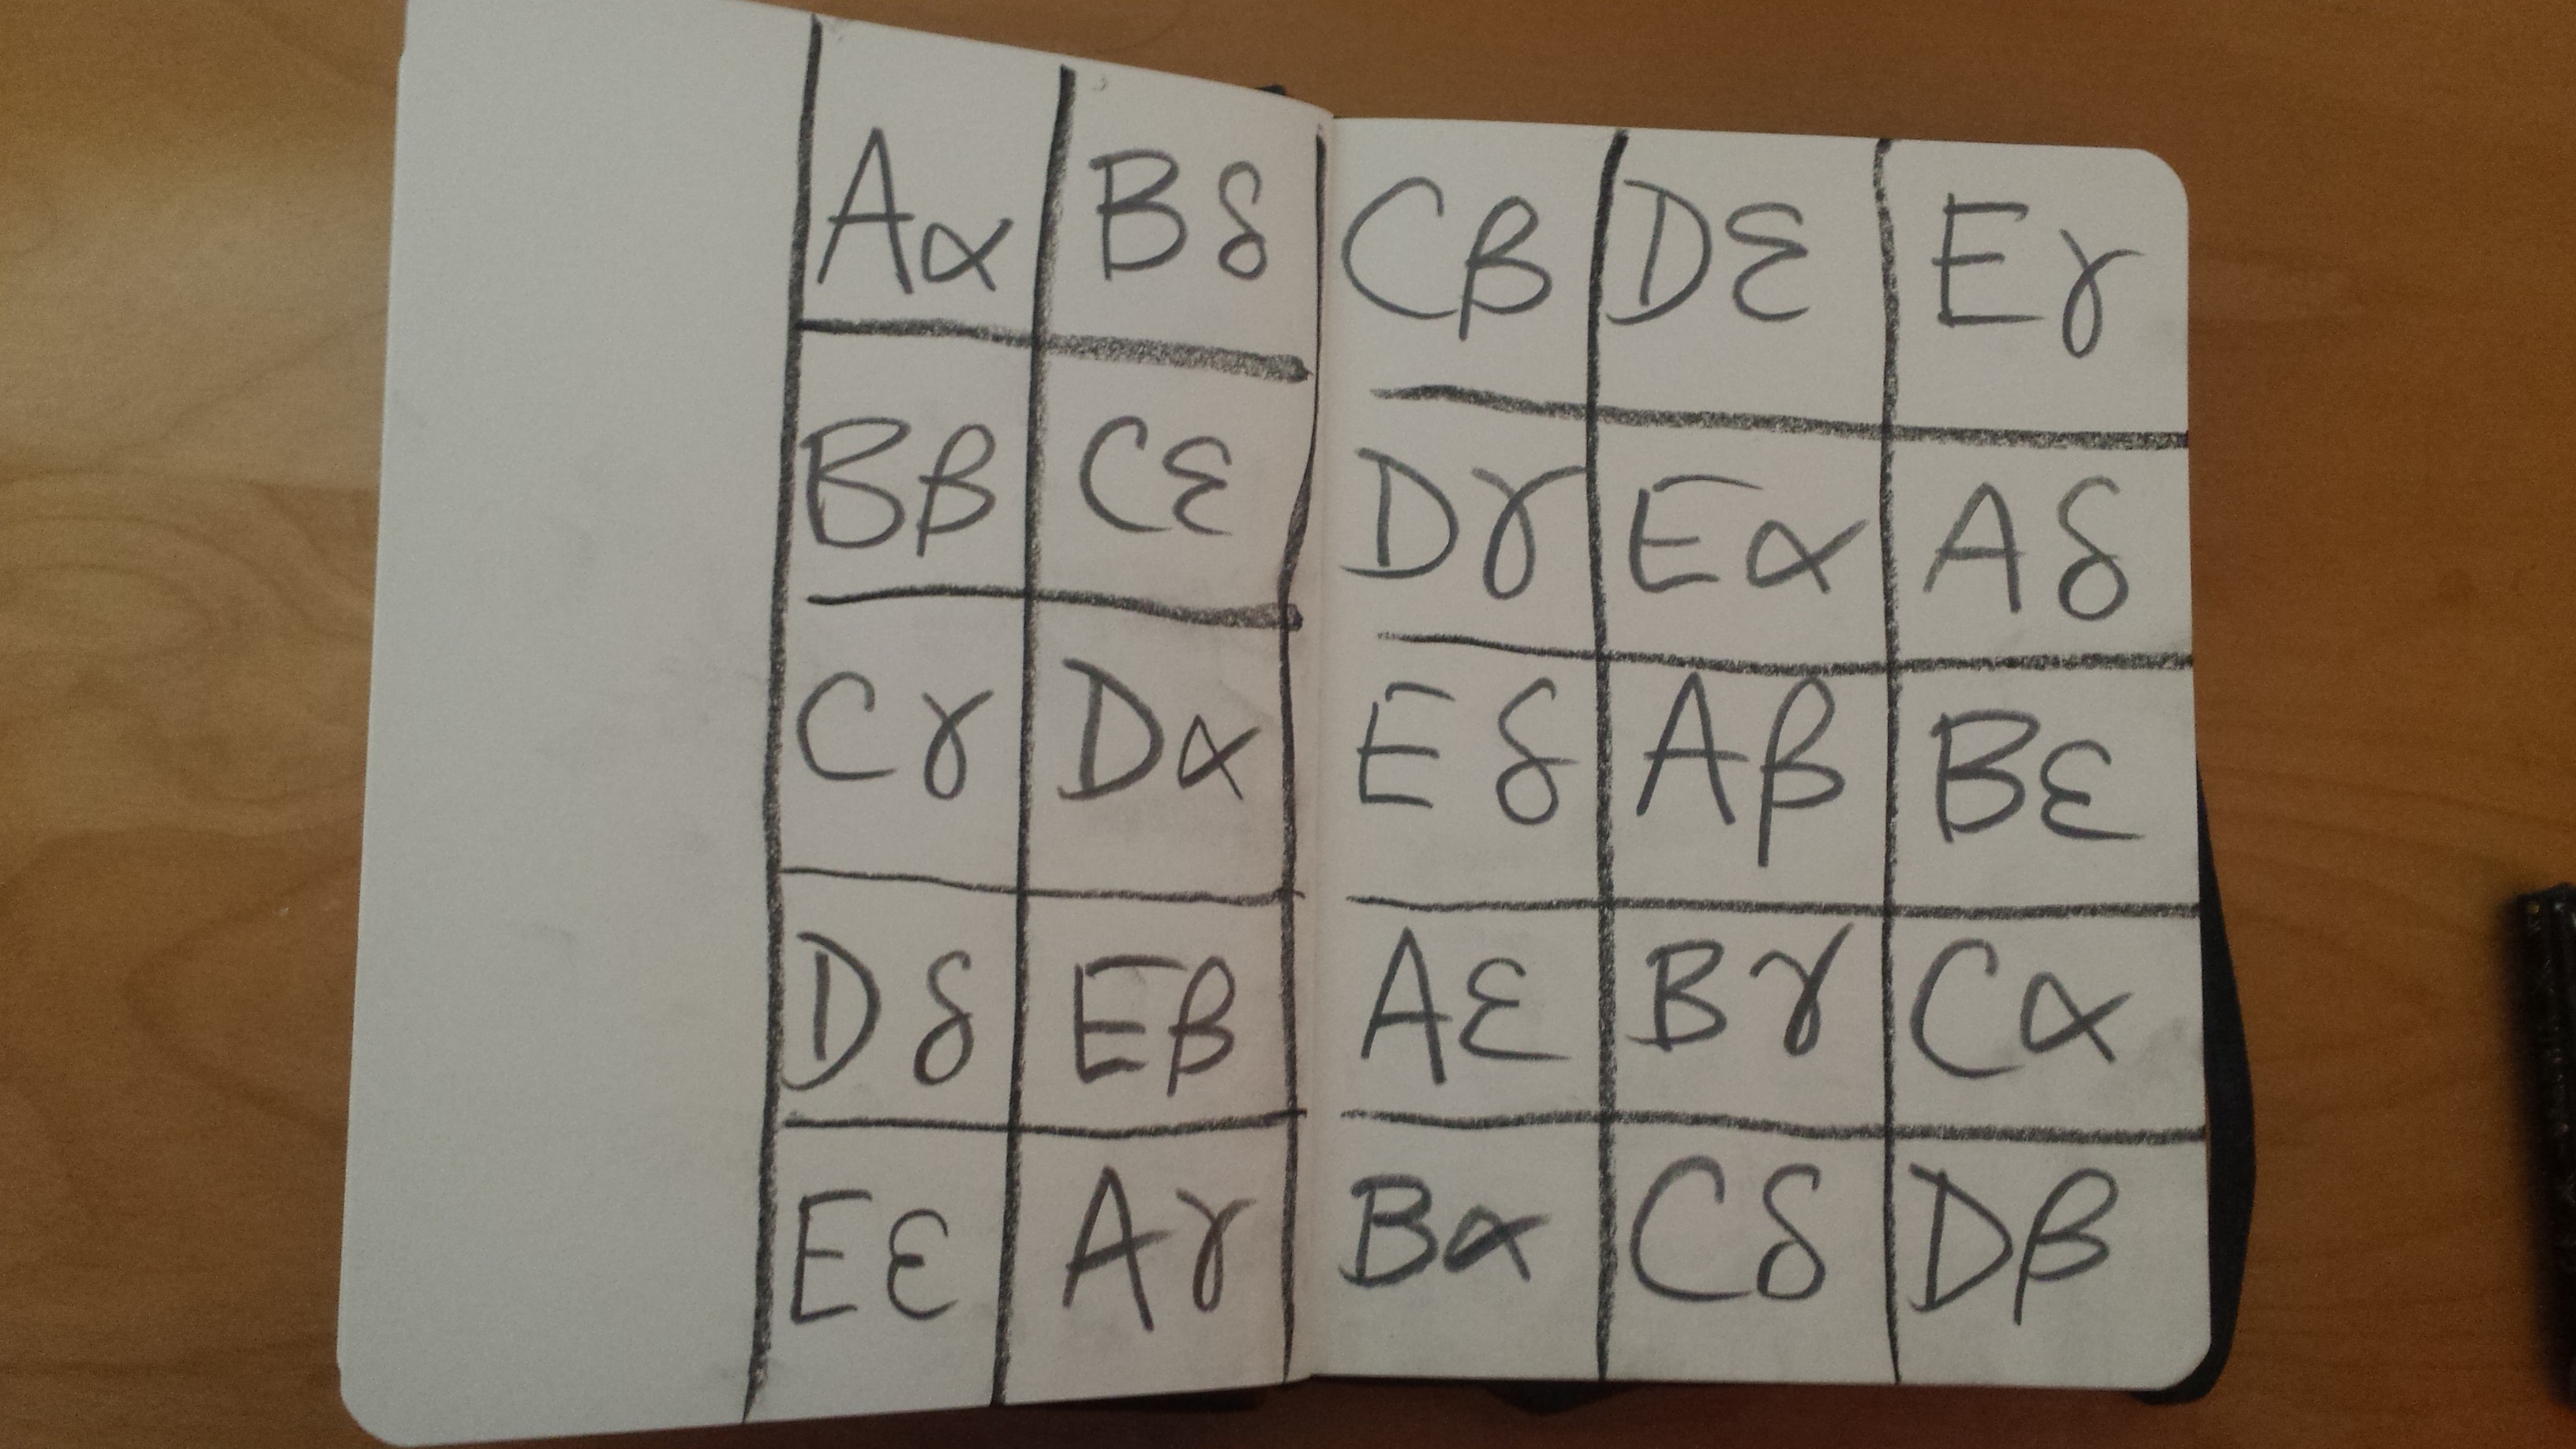 Aα Bδ Cβ Dε Eγ
Bβ Cε Dγ Eα Aδ
Cγ Dα Eδ Aβ Bε
Dδ Eβ Aε Bγ Cα
Eε Aγ Bα Cδ Dβ